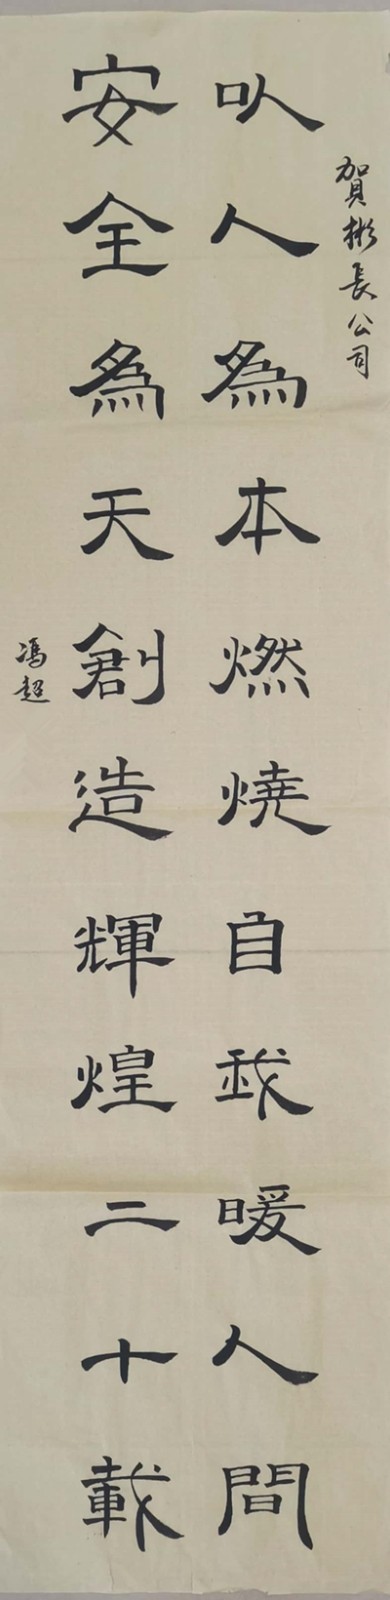 賀彬長公司
以人為本燃燒自我暖人間
安全為天創造輝煌二十載
馮超